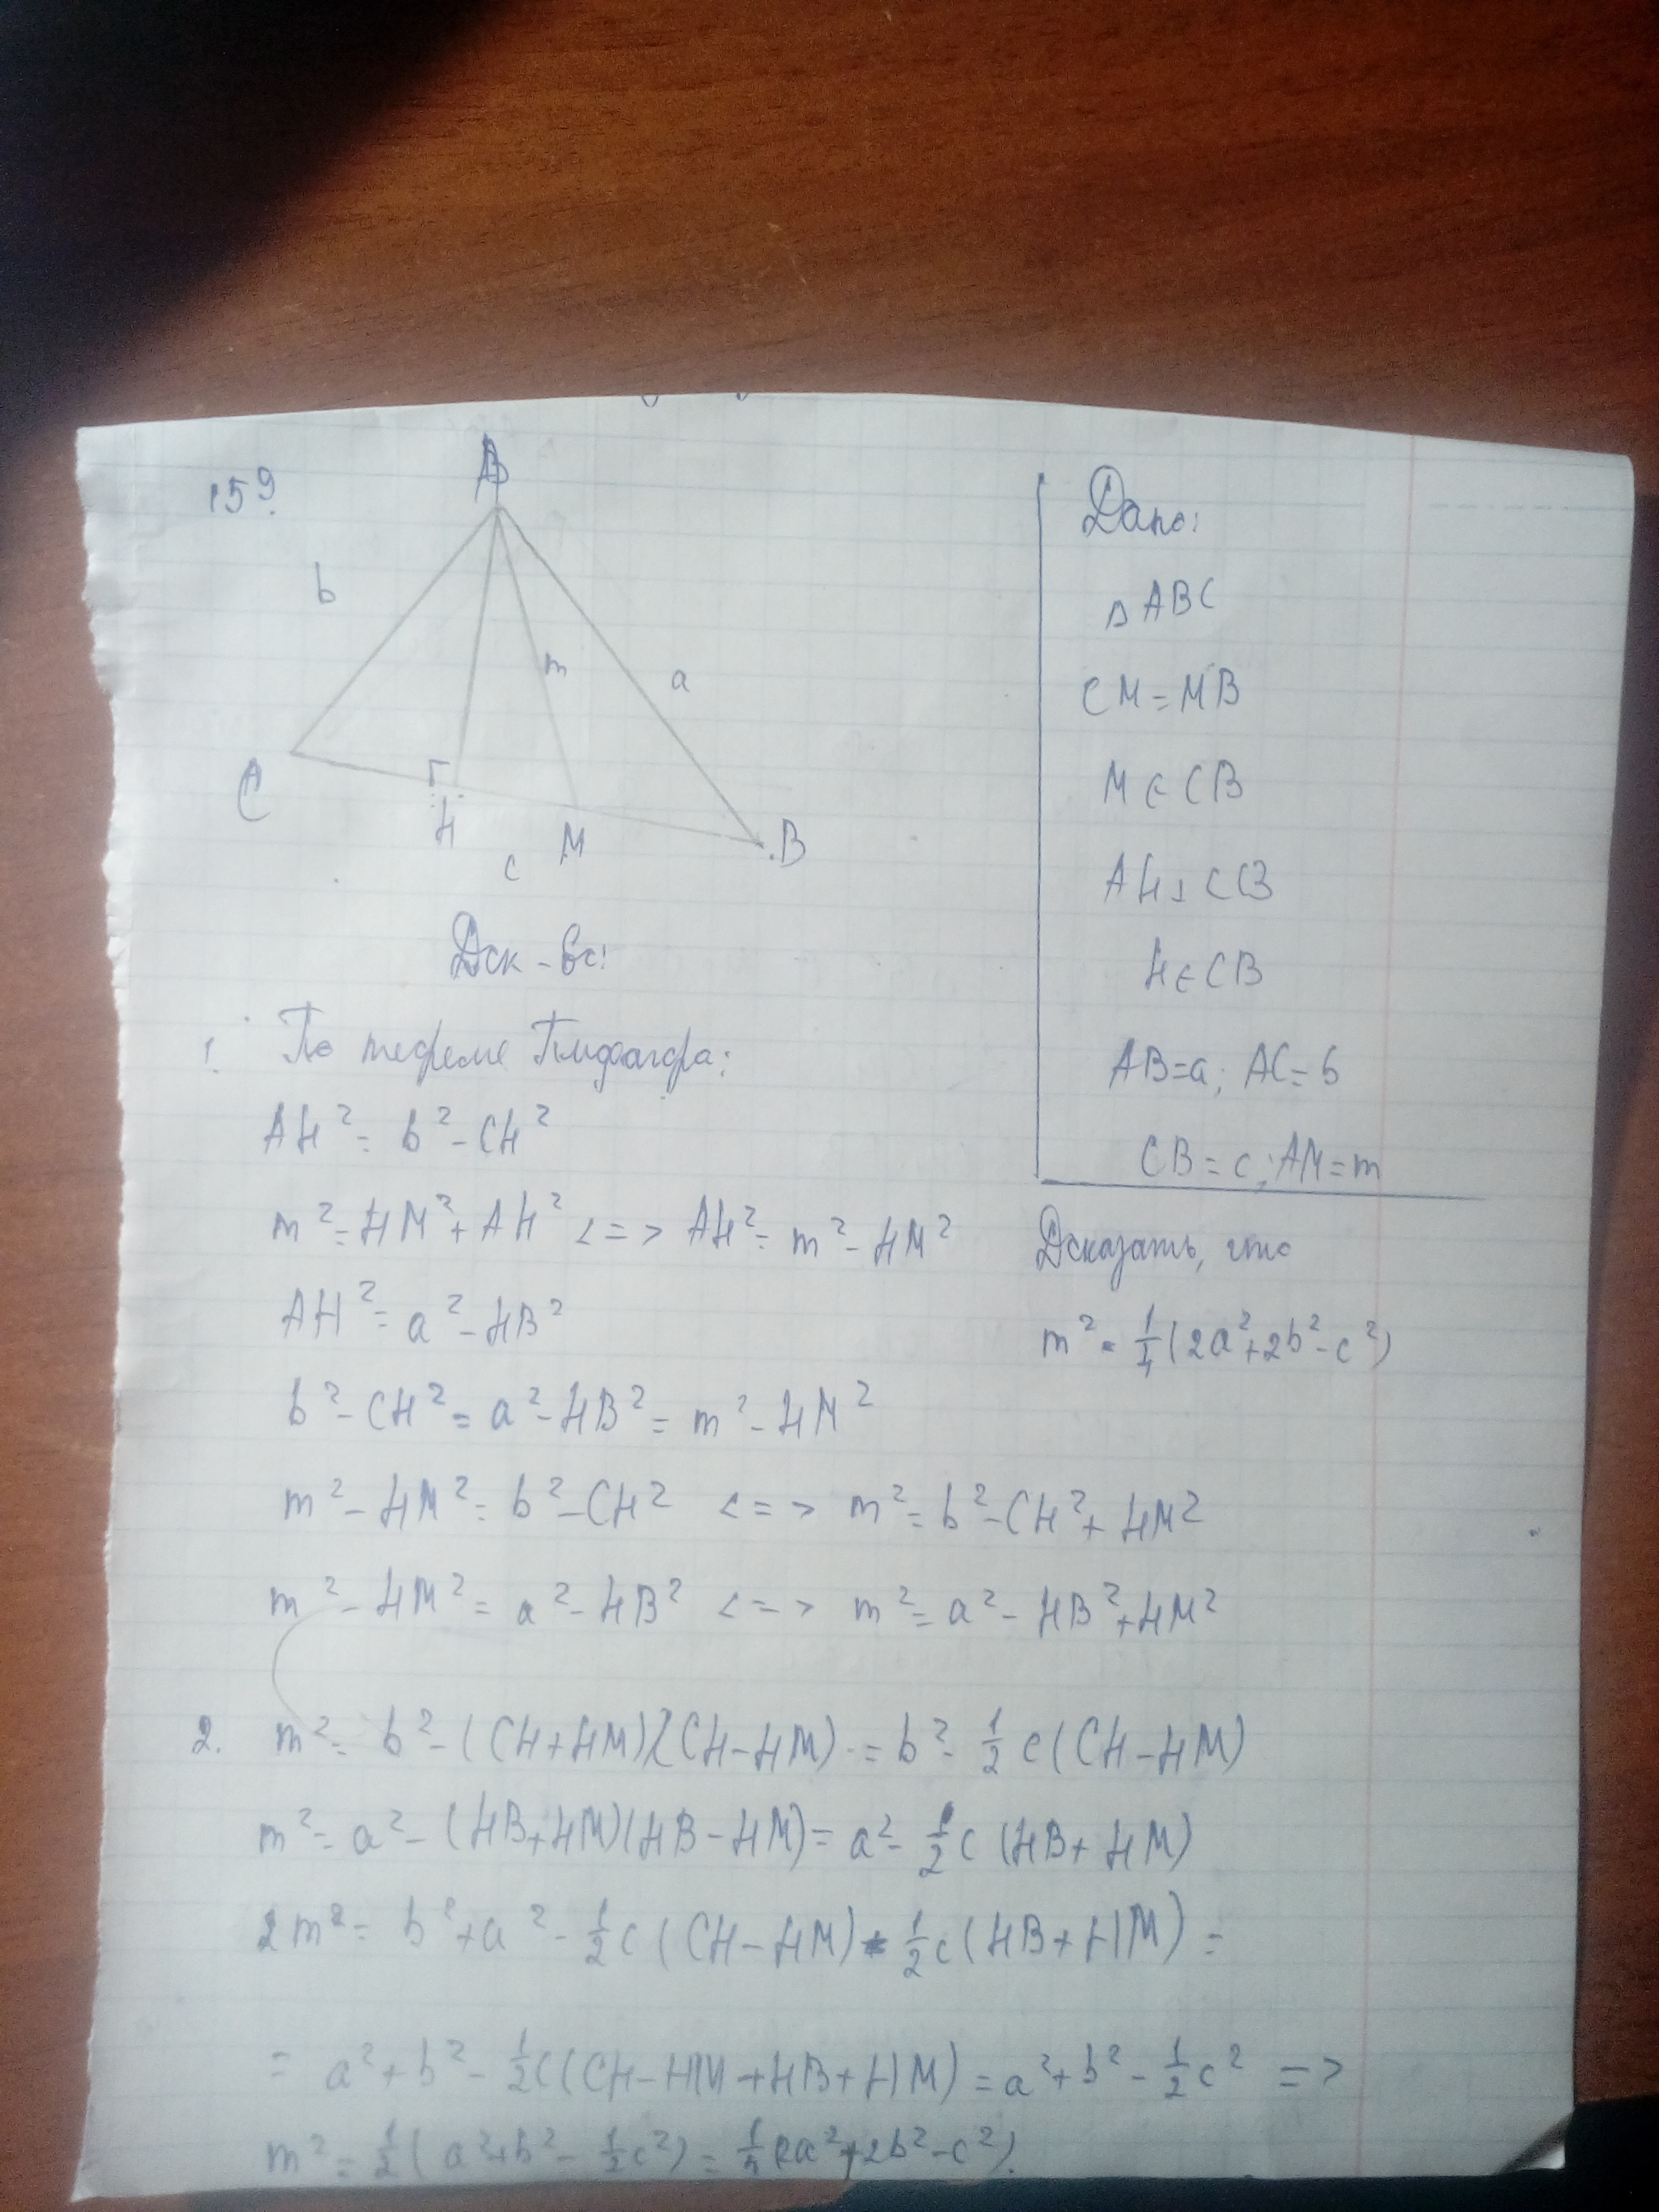 159.
A
b
m
a
C
H
M
c
B
Дано:
△ABC
CM = MB
M ∈ CB
AH ⊥ CB
H ∈ CB
AB = a; AC = b
CB = c; AM = m
Доказать, что
m² = 1/4 (2a² + 2b² - c²)
Док-во:
1. По теореме Пифагора:
AH² = b² - CH²
m² = HM² + AH² <=> AH² = m² - HM²
AH² = a² - HB²
b² - CH² = a² - HB² = m² - HM²
m² - HM² = b² - CH² <=> m² = b² - CH² + HM²
m² - HM² = a² - HB² <=> m² = a² - HB² + HM²
2. m² = b² - (CH + HM)(CH - HM) = b² - 1/2 c (CH - HM)
m² = a² - (HB + HM)(HB - HM) = a² - 1/2 c (HB + HM)
2m² = b² + a² - 1/2 c (CH - HM) - 1/2 c (HB + HM) =
= a² + b² - 1/2 c (CH - HM + HB + HM) = a² + b² - 1/2 c² =>
m² = 1/2 (a² + b² - 1/2 c²) = 1/4 (2a² + 2b² - c²).